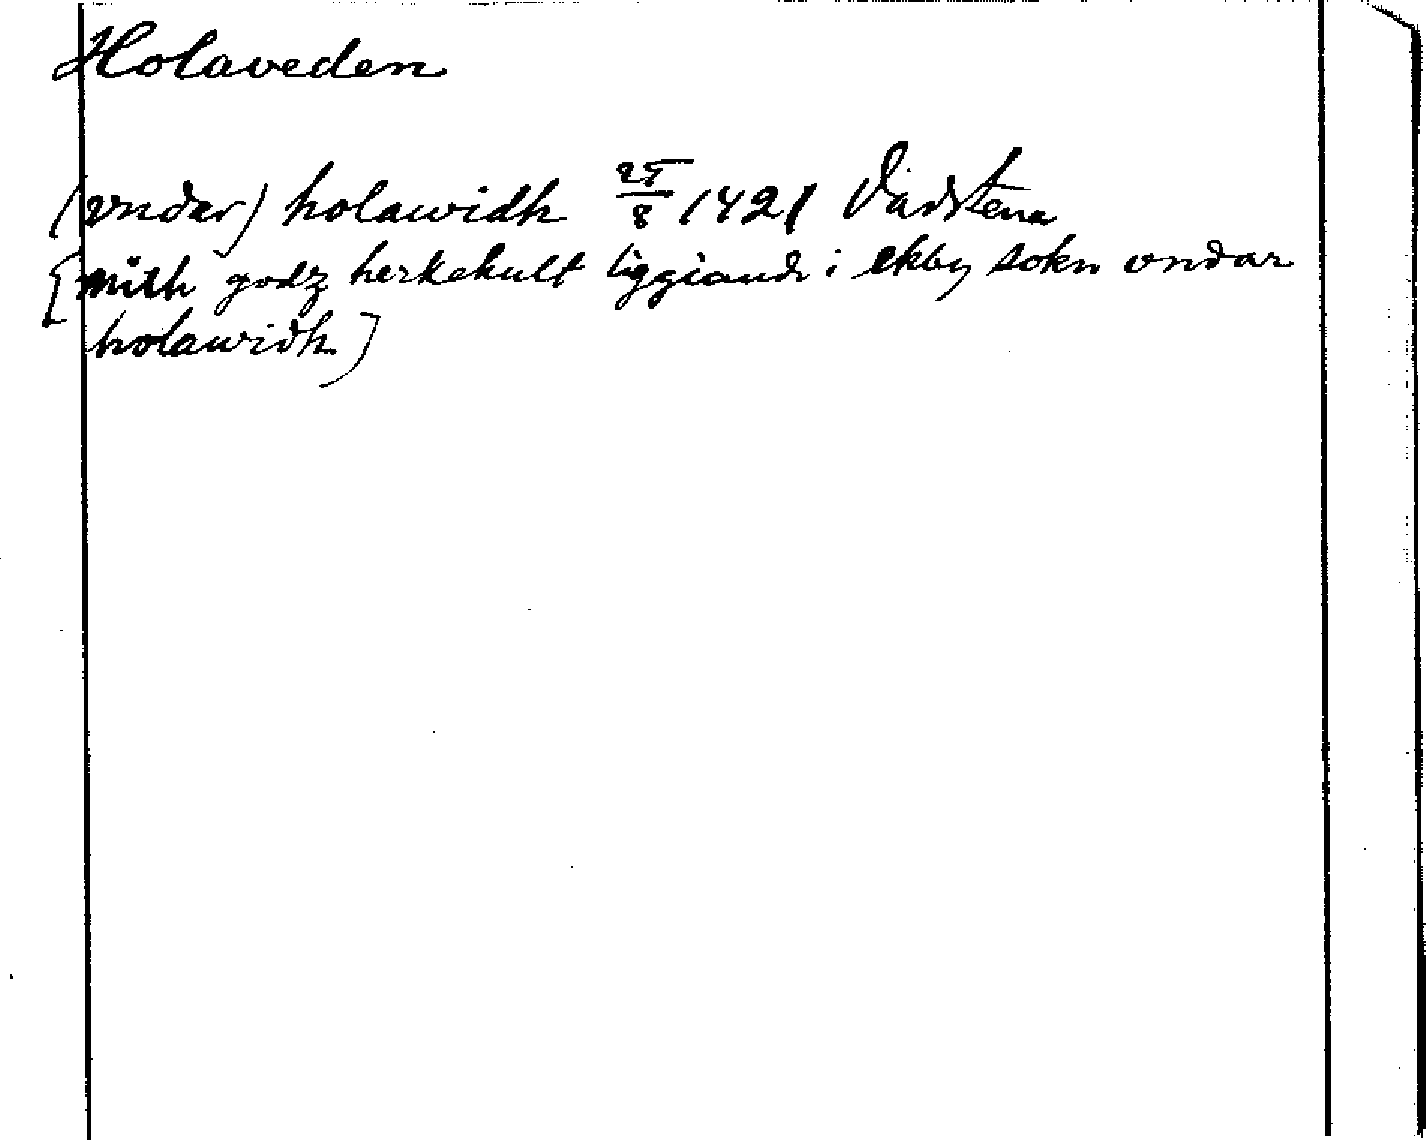 Holaveden
(vndar) holawidh 25/8 1421 Vadstena
[mith godz herkekult liggiande i ekby sokn vndar
holawidh]